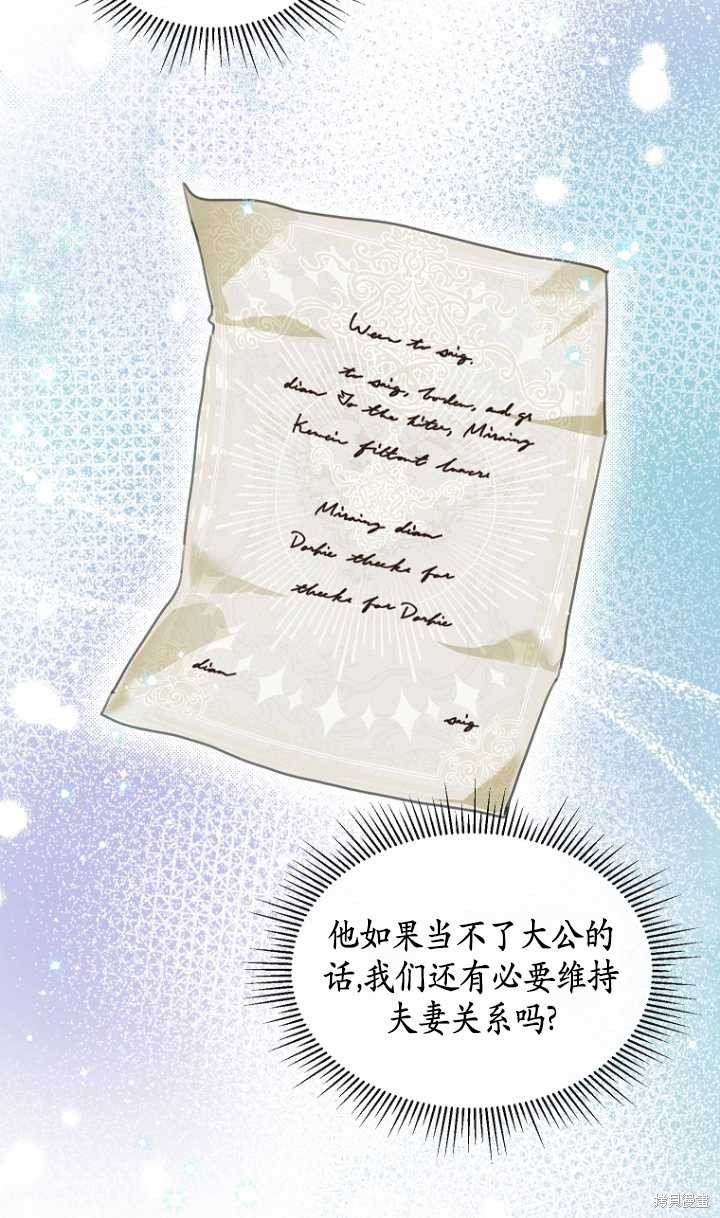 Ween to sig.
to sig, border, ad gs
dian To the hites, Miraing
Kemein filtont
Miraing dian
Dorhie theeks for
theeks for Dorhie
dian
sig
他如果当不了大公的
话,我们还有必要维持
夫妻关系吗?
拷贝漫畫